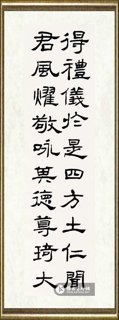 得禮儀於是四方土仁聞
君風燿敬咏其德尊琦大